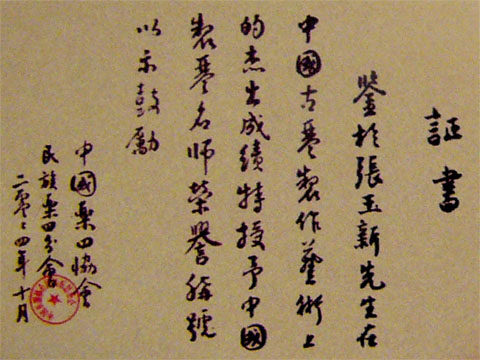 証書
鉴於張玉新先生在
中國古琴製作藝術上
的杰出成績特授予中國
製琴名師榮譽稱號
以示鼓勵
中國樂器協會
民族樂器分會
二零〻四年十月